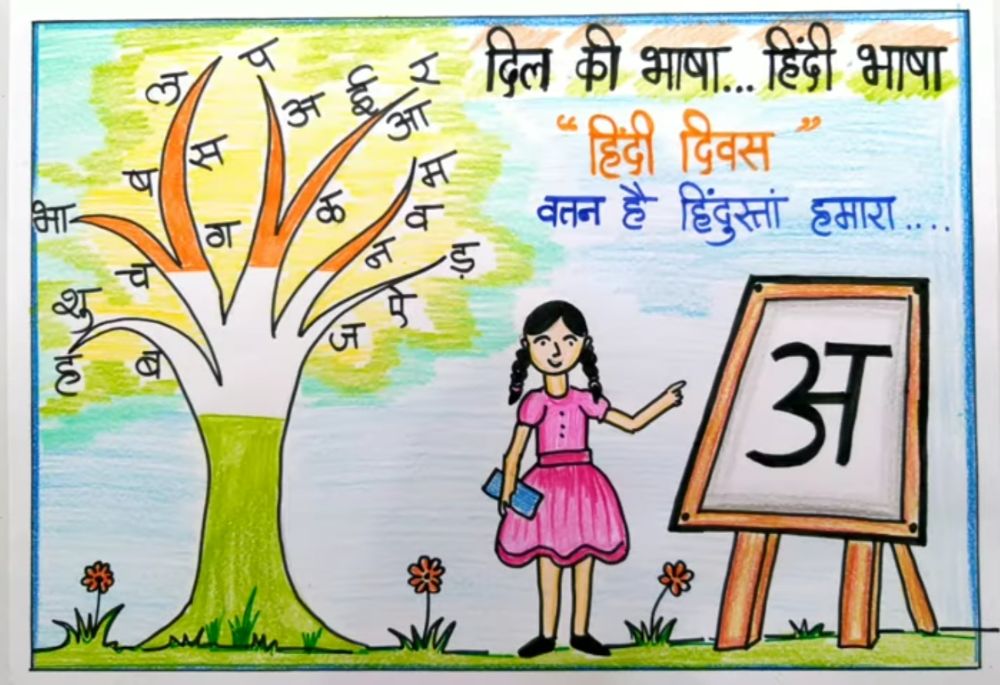 दिल की भाषा... हिंदी भाषा
"हिंदी दिवस"
वतन है हिंदुस्तां हमारा....
ल
प
अ
ई
र
आ
स
ष
म
क
व
भा
ग
न
ड़
च
श्रु
ऐ
ज
ह
ब
अ